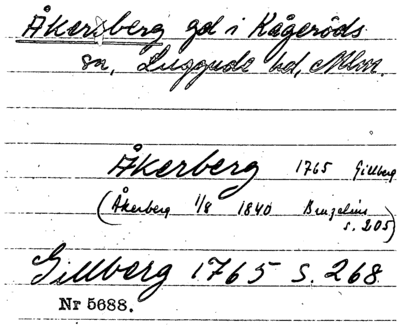 Åkersberg gd i Kågeröds
sn, Luggude hd, Mlm.
Åkerberg 1765 Gillberg
(Åkerberg 1/8 1840 Benzelius
s. 205)
Gillberg 1765 s. 268
Nr 5688.